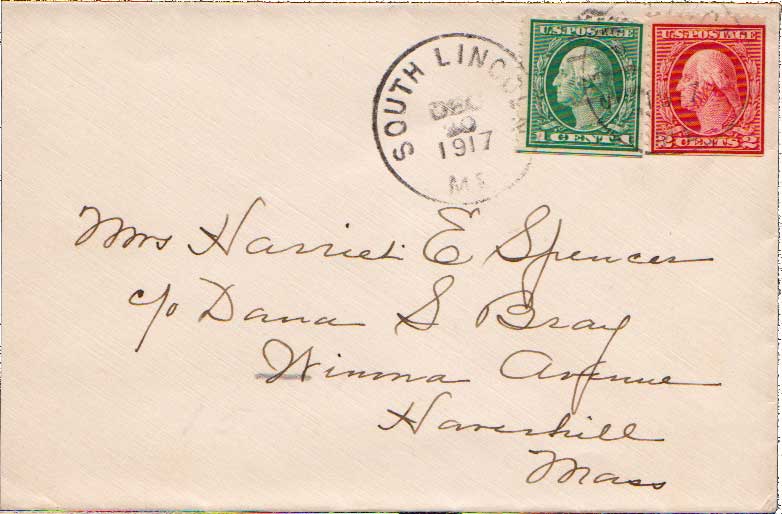 SOUTH LINCOLN
DEC
20
1917
ME
U.S. POSTAGE
1 CENT 1
U.S. POSTAGE
2 CENTS 2
Mrs Harriet E Spencer
c/o Dana S Bray
Winona Avenue
Haverhill
Mass